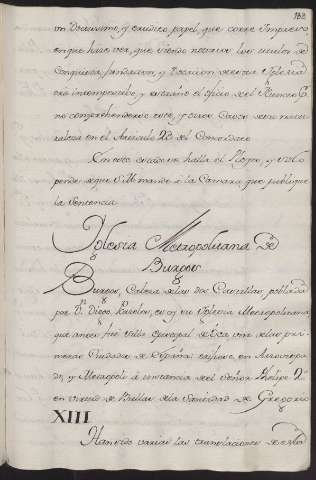 188
un Doctissimo, y erudito papel, que corre Impreso
en que hace ver, que siendo notorias los titulos de
Conquista, fundacion, y Dotacion de esta Iglesia
era intempestivo, y extraño el oficio del Nuncio
no comprehendiendo este, y otros casos de su natu-
raleza en el Articulo 23 del Concordato
En este estado se halla el Pleyto, y solo
pende de que S. M. mande à la Camara que publique
la Sentencia
Iglesia Metropolitana de
Burgos
Burgos, Cabeza de las dos Castillas, poblada
por Dn. Diego Porcelos, es oy su Iglesia Metropolitana,
que antes fuè Silla Episcopal de una de las pri-
meras Ciudades de España: erigiose en Arzobispa-
do, y Metropoli à instancia del Señor Phelipe 2º
en virtud de Bullas de la Santidad de Gregorio
XIII
Han sido varias las translaciones de esta